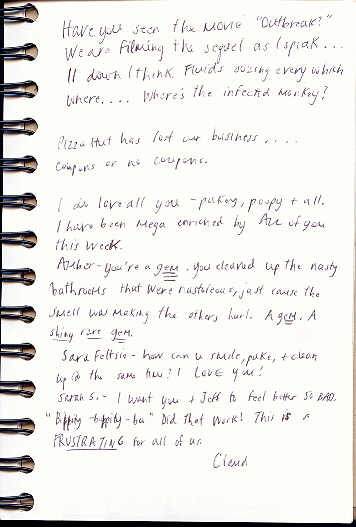 Have you seen the movie "Outbreak?"
We are filming the sequel as I speak...
11 down I think. Fluids oozing every which
where.... Where's the infected monkey?
Pizza Hut has lost our business....
coupons or no coupons.
I do love all you - pukey, poopy + all.
I have been mega enriched by all of you
this week.
Amber - you're a gem. You cleaned up the nasty
bathrooms that were nasty, just cause the
smell was making the others hurl. A gem. A
shiny rare gem.
Sara Feltsie - how can u smile, puke, + clean
up @ the same time? I LOVE you!
Sarah S. - I want you + Jeff to feel better SO BAD.
"Bippity-boppity-boo" Did that work? This is
FRUSTRATING for all of us.